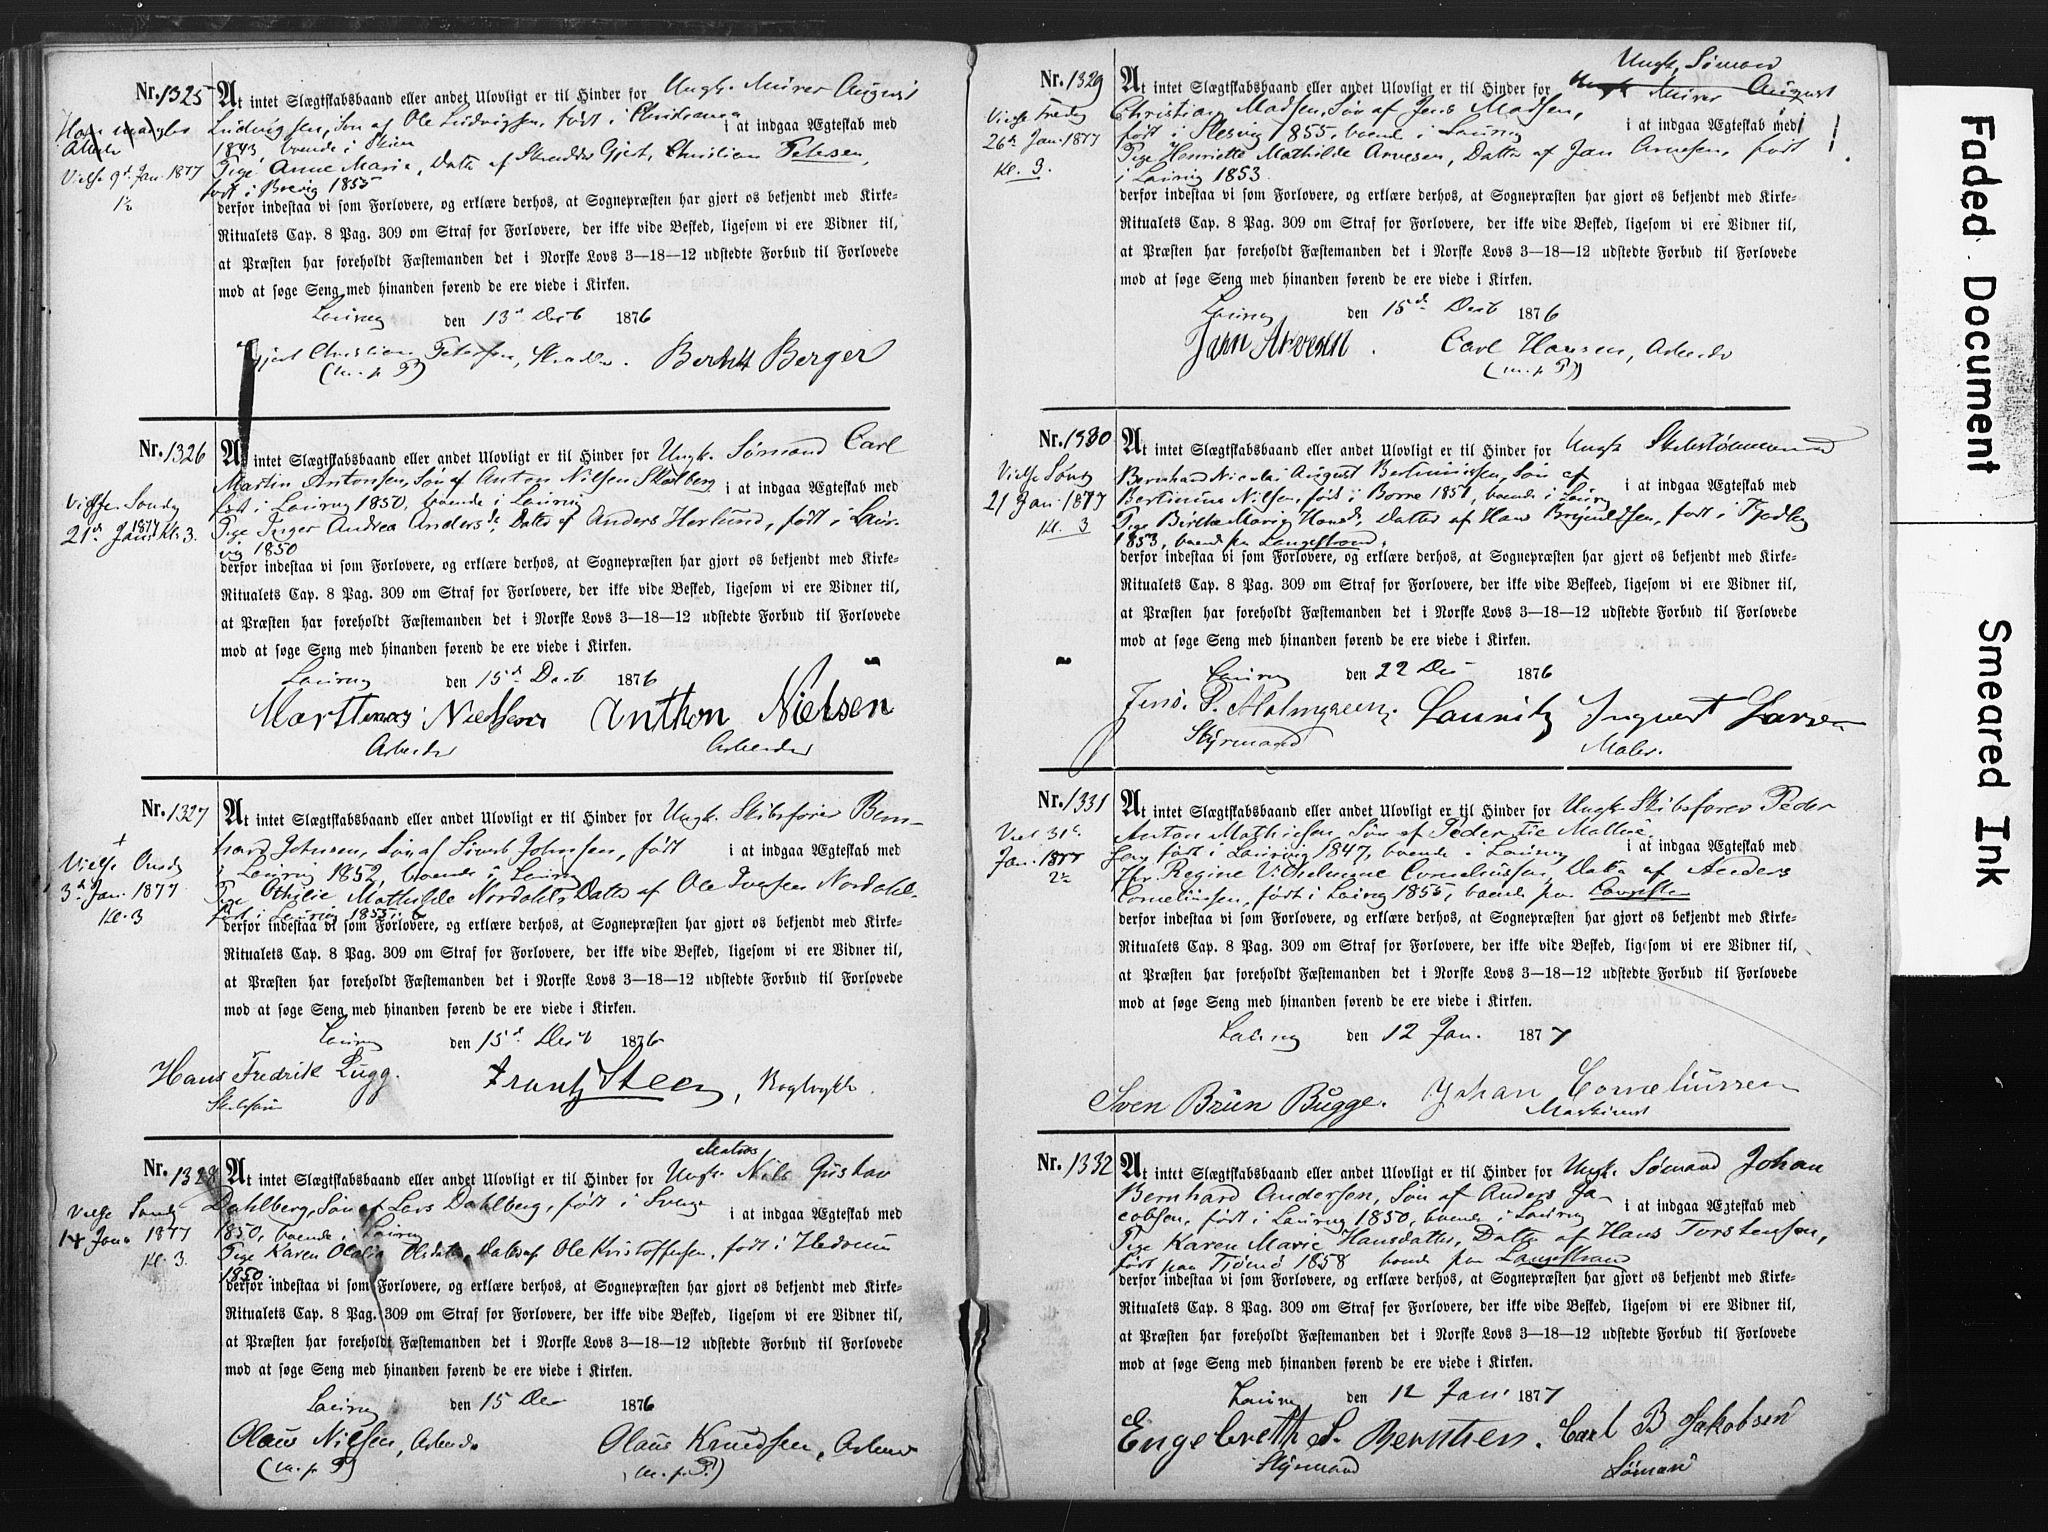 Nr. 1325
At intet Slægtskabsbaand eller andet Ulovligt er til Hinder for Ungk. Murer August
Ludvigsen, Søn af Ole Ludvigsen, født i Christiania i at indgaa Ægteskab med
1843, boende i Skien
Pige Anne Marie, Datter af Skrædder Gjert Christian Petersen,
født i Brevig 1855
Vielse 9d Jan. 1877
derfor indestaa vi som Forlovere, og erklære derhos, at Sognepræsten har gjort os bekjendt med Kirke-
Ritualets Cap. 8 Pag. 309 om Straf for Forlovere, der ikke vide Besked, ligesom vi ere Vidner til,
at Præsten har foreholdt Fæstemanden det i Norske Lovs 3—18—12 udstedte Forbud til Forlovede
mod at søge Seng med hinanden førend de ere viede i Kirken.
Laurvig den 13d Decb 1876
Gjert Christian Petersen, Skrædder. Berger
(m. p. P)
Nr. 1326
At intet Slægtskabsbaand eller andet Ulovligt er til Hinder for Ungk. Sømand Carl
Martin Antonsen, Søn af Anton Nilsen Skotberg i at indgaa Ægteskab med
født i Laurvig 1850, boende i Laurvig
Pige Inger Andrea Andersd. Datter af Anders Herlund, født i Laur-
vig 1850
Vielse Søndg
21d Jan 1877 kl. 3.
derfor indestaa vi som Forlovere, og erklære derhos, at Sognepræsten har gjort os bekjendt med Kirke-
Ritualets Cap. 8 Pag. 309 om Straf for Forlovere, der ikke vide Besked, ligesom vi ere Vidner til,
at Præsten har foreholdt Fæstemanden det i Norske Lovs 3—18—12 udstedte Forbud til Forlovede
mod at søge Seng med hinanden førend de ere viede i Kirken.
Laurvig den 15d Decb 1876
Marttinus Nielsen Anthon Nielsen
Arbeider Arbeider
Nr. 1327
At intet Slægtskabsbaand eller andet Ulovligt er til Hinder for Ungk. Skibsfører Bern-
hard Johnsen, Søn af Sivert Johnsen, født i at indgaa Ægteskab med
i Laurvig 1852, boende i Laurvig
Pige Othilie Mathilde Nordahl, Datter af Ole Iversen Nordahl,
født i Laurvig 1855
Vielse Onsdg
3d Jan. 1877
Kl. 3
derfor indestaa vi som Forlovere, og erklære derhos, at Sognepræsten har gjort os bekjendt med Kirke-
Ritualets Cap. 8 Pag. 309 om Straf for Forlovere, der ikke vide Besked, ligesom vi ere Vidner til,
at Præsten har foreholdt Fæstemanden det i Norske Lovs 3—18—12 udstedte Forbud til Forlovede
mod at søge Seng med hinanden førend de ere viede i Kirken.
Laurvig den 15d Decb 1876
Hans Fredrik Bugg. Frantz Steen, Bogtrykker.
Skibsfører
Nr. 1328
Matros
At intet Slægtskabsbaand eller andet Ulovligt er til Hinder for Ungk. Nils Gustav
Dahlberg, Søn af Lars Dahlberg, født i Sverige i at indgaa Ægteskab med
1850, boende i Laurvig
Pige Karen Olalia Olsdatter, Datter af Ole Kristoffersen, født i Hedrum
1850.
Vielse Søndg
14 Jan. 1877
Kl. 3.
derfor indestaa vi som Forlovere, og erklære derhos, at Sognepræsten har gjort os bekjendt med Kirke-
Ritualets Cap. 8 Pag. 309 om Straf for Forlovere, der ikke vide Besked, ligesom vi ere Vidner til,
at Præsten har foreholdt Fæstemanden det i Norske Lovs 3—18—12 udstedte Forbud til Forlovede
mod at søge Seng med hinanden førend de ere viede i Kirken.
Laurvig den 15 Dec 1876
Olaus Nielsen, Arbeider Olaus Knudsen, Arbeider
(m. p. P) (m. p. P.)
Nr. 1329
Ungk. Sømand
At intet Slægtskabsbaand eller andet Ulovligt er til Hinder for Ungk Murer August
Christian Madsen, Søn af Jens Madsen, i at indgaa Ægteskab med
født i Slesvig 1855, boende i Laurvig
Pige Henriette Mathilde Arvesen, Datter af Jan Arvesen, født
i Laurvig 1853.
Vielse Fredg
26d Jan. 1877
Kl. 3.
derfor indestaa vi som Forlovere, og erklære derhos, at Sognepræsten har gjort os bekjendt med Kirke-
Ritualets Cap. 8 Pag. 309 om Straf for Forlovere, der ikke vide Besked, ligesom vi ere Vidner til,
at Præsten har foreholdt Fæstemanden det i Norske Lovs 3—18—12 udstedte Forbud til Forlovede
mod at søge Seng med hinanden førend de ere viede i Kirken.
Laurvig den 15d Decb 1876
Jahn Arvesen. Carl Hansen, Arbeider
(m. p. P)
Nr. 1330
At intet Slægtskabsbaand eller andet Ulovligt er til Hinder for Ungk Skibstømmermand
Bernhard Nicolai August Bertinussen, Søn af i at indgaa Ægteskab med
Bertinus Nilsen, født i Borre 1851, boende i Laurvig
Pige Birthe Marie Hansd., Datter af Hans Brynildsen, født i Tjødling
1853, boende paa Langestrand.
Vielse Søndg
21 Jan. 1877
Kl. 3
derfor indestaa vi som Forlovere, og erklære derhos, at Sognepræsten har gjort os bekjendt med Kirke-
Ritualets Cap. 8 Pag. 309 om Straf for Forlovere, der ikke vide Beskeed, ligesom vi ere Vidner til,
at Præsten har foreholdt Fæstemanden det i Norske Lovs 3—18—12 udstedte Forbud til Forlovede
mod at søge Seng med hinanden førend de ere viede i Kirken.
Laurvig den 22 Dec 1876
Jens. P. Malmgreen. Lauritz Ingvart Larsen
Styrmand Maler.
Nr. 1331
At intet Slægtskabsbaand eller andet Ulovligt er til Hinder for Ungk. Skibsfører Peder
Anton Mathiesen, Søn af Peder i at indgaa Ægteskab med
født i Laurvig 1847, boende i Laurvig
Regine Vilhelmine Corneliussen, Datter af Anders
Corneliussen, født i Laurvig 1855, boende paa Langestr.
Viet 31te
Jan. 1877
derfor indestaa vi som Forlovere, og erklære derhos, at Sognepræsten har gjort os bekjendt med Kirke-
Ritualets Cap. 8 Pag. 309 om Straf for Forlovere, der ikke vide Besked, ligesom vi ere Vidner til,
at Præsten har foreholdt Fæstemanden det i Norske Lovs 3—18—12 udstedte Forbud til Forlovede
mod at søge Seng med hinanden førend de ere viede i Kirken.
Laurvig den 12 Jan. 1877
Sven Brun Bugge. Johan Corneliussen
Maskinist
Nr. 1332
At intet Slægtskabsbaand eller andet Ulovligt er til Hinder for Ungk. Sømand Johan
Bernhard Andersen, Søn af Anders Ja- i at indgaa Ægteskab med
cobsen, født i Laurvig 1850, boende i Laurvig
Pige Karen Marie Hansdatter, Datter af Hans Torstensen,
født paa Tjømø 1858 boende paa Langestrand
derfor indestaa vi som Forlovere, og erklære derhos, at Sognepræsten har gjort os bekjendt med Kirke-
Ritualets Cap. 8 Pag. 309 om Straf for Forlovere, der ikke vide Besked, ligesom vi ere Vidner til,
at Præsten har foreholdt Fæstemanden det i Norske Lovs 3—18—12 udstedte Forbud til Forlovede
mod at søge Seng med hinanden førend de ere viede i Kirken.
Laurvig den 12 Jan. 1877
Engebreth S. Berntsen. Carl B Jakobsen
Styrmand Sømand
Faded Document
Smeared Ink